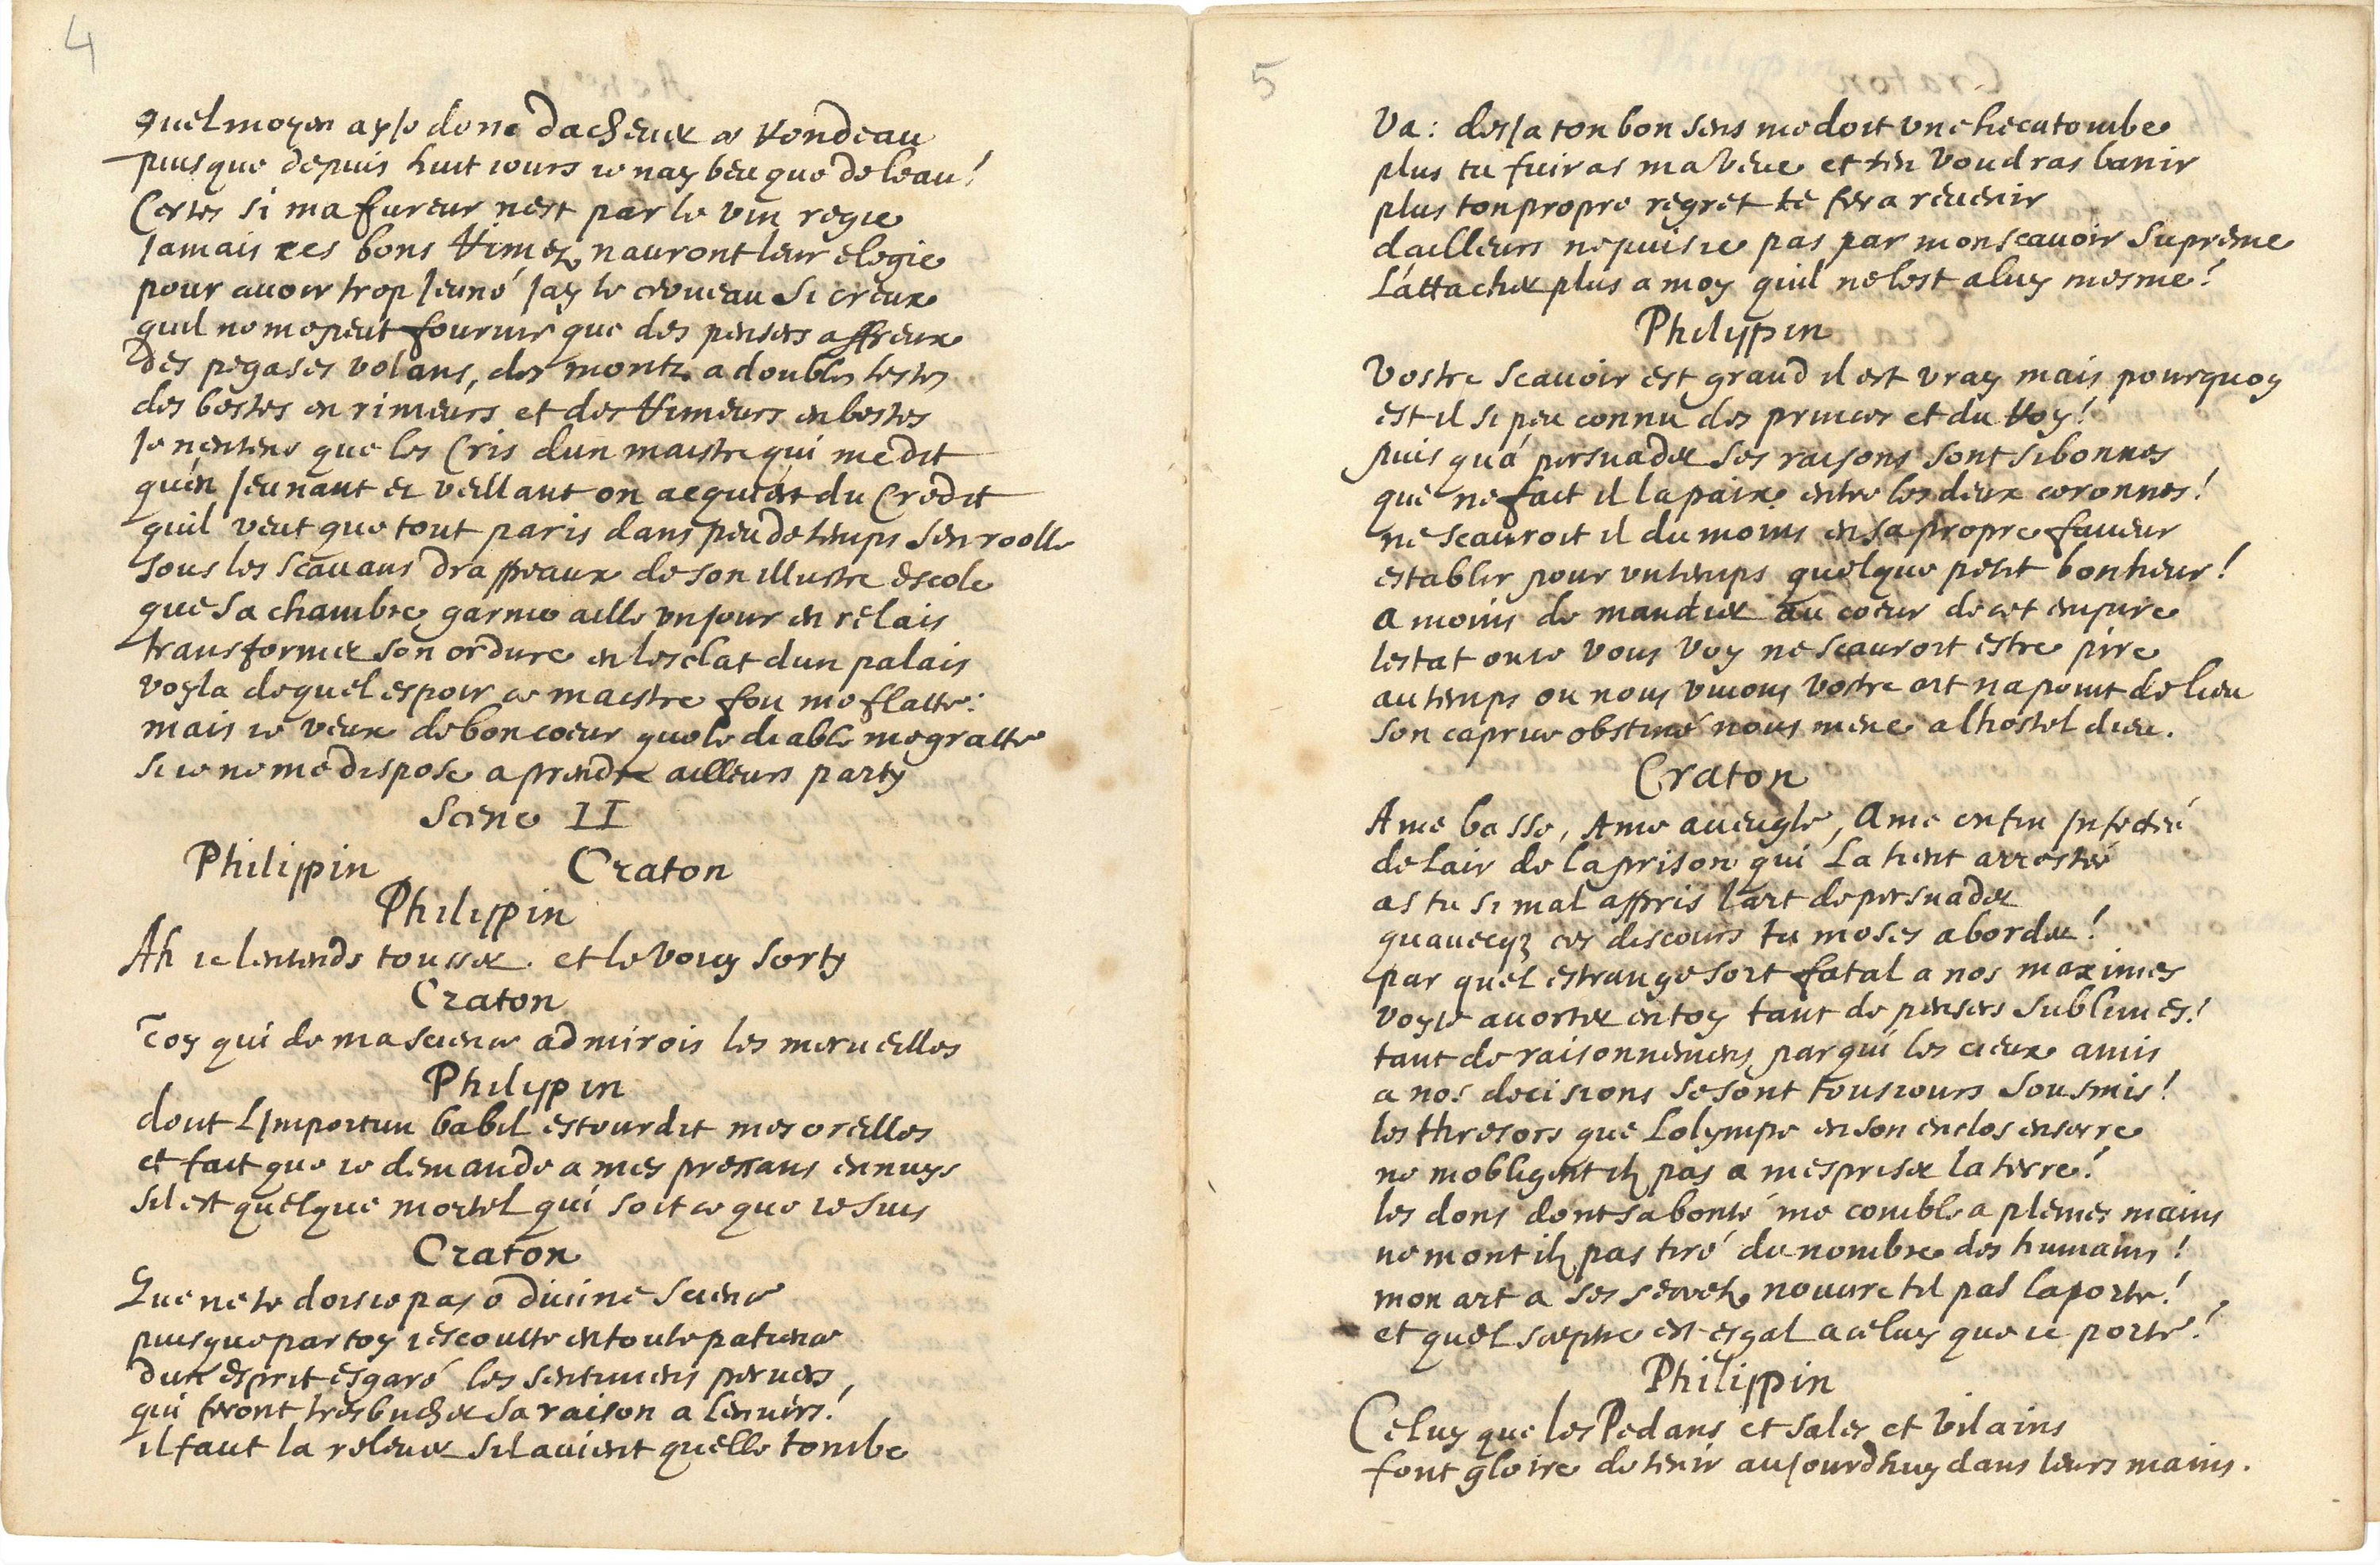 4
quel moyen ay je donc dacheuer ce Rondeau
puis que depuis huit iours ie nay beu que de leau!
Certes si ma fureur nest par le vin regie
Jamais ces bons Rimez nauront leur elegie
pour auoir trop Jeuné Jay le cerueau si creux
quil ne me peut fournir que des pensers affreux
Des pegases volans, des montz a doubles testes
des bestes en rimeurs et des Rimeurs en bestes
Je nentens que les Cris dun maistre qui me dit
quen Jeunant et veillant on acquiert du Credit
quil veut que tout paris dans peu de temps senroolle
sous les scauans Drappeaux de son illustre escole
que sa chambre garnie aille un jour en relais
transformer son ordure en lesclat dun palais
voyla de quel espoir ce maistre fou me flatte:
mais ie veux de bon coeur que le diable me gratte
si ie ne me dispose a prendre ailleurs party
Scene II
Philippin Craton
Philippin
Ah ie lentends tousser. et le voicy sorty
Craton
Toy qui de ma science admirois les merueilles
Philippin
dont LJmportun babil estourdit mes oreilles
et fait que ie demande a mes pressans ennuys
sil est quelque mortel qui soit ce que ie suis
Craton
Que ne te dois ie pas o diuine science
puis que par toy iescoutte en toute patience
dun esprit esgaré les sentimens peruers,
qui feront tresbucher sa raison a lenuers!
il faut la releuer sil auient quelle tombe
5
Va: desja ton bon sens me doit vne hecatombe
plus tu fuiras ma veue et ten voudras banir
plus ton propre regret te fera reuenir
dailleurs ne puis ie pas par mon scauoir supreme
Lattacher plus a moy quil ne lest a luy mesme?
Philippin
Vostre scauoir est grand il est vray mais pourquoy
est il si peu connu des princes et du Roy!
puis qua persuader ses raisons sont si bonnes
que ne fait il la paix entre les deux coronnes!
ne scauroit il du moins en sa propre faueur
establir pour vn temps quelque petit bonheur!
a moins de mandier au coeur de cet empire
lestat ou ie vous voy ne scauroit estre pire
au temps ou nous viuons vostre art na point de lieu
son caprice obstiné nous mene a lhostel dieu.
Craton
Ame basse, Ame aueugle, Ame enfin Jnfectée
de lair de la prison qui La tient arrestée
as tu si mal appris lart de persuader
quauecqz ces discours tu moses aborder!
par quel estrange sort fatal a nos maximes
voy ie auorter en toy tant de pensers sublimes!
tant de raisonnemens par qui les cieux amis
a nos decisions se sont tousiours sousmis!
les thresors que Lolympe en son enclos enserre
ne mobligent ilz pas a mespriser la terre!
les dons dont sa bonté me comble a pleines mains
ne mont ilz pas tiré du nombre des humains!
mon art a ses secretz nouure til pas la porte!
et quel sceptre est esgal a celuy que ie porte!
Philippin
Celuy que les Pedans et sales et vilains
font gloire de tenir aujourdhuy dans leurs mains.